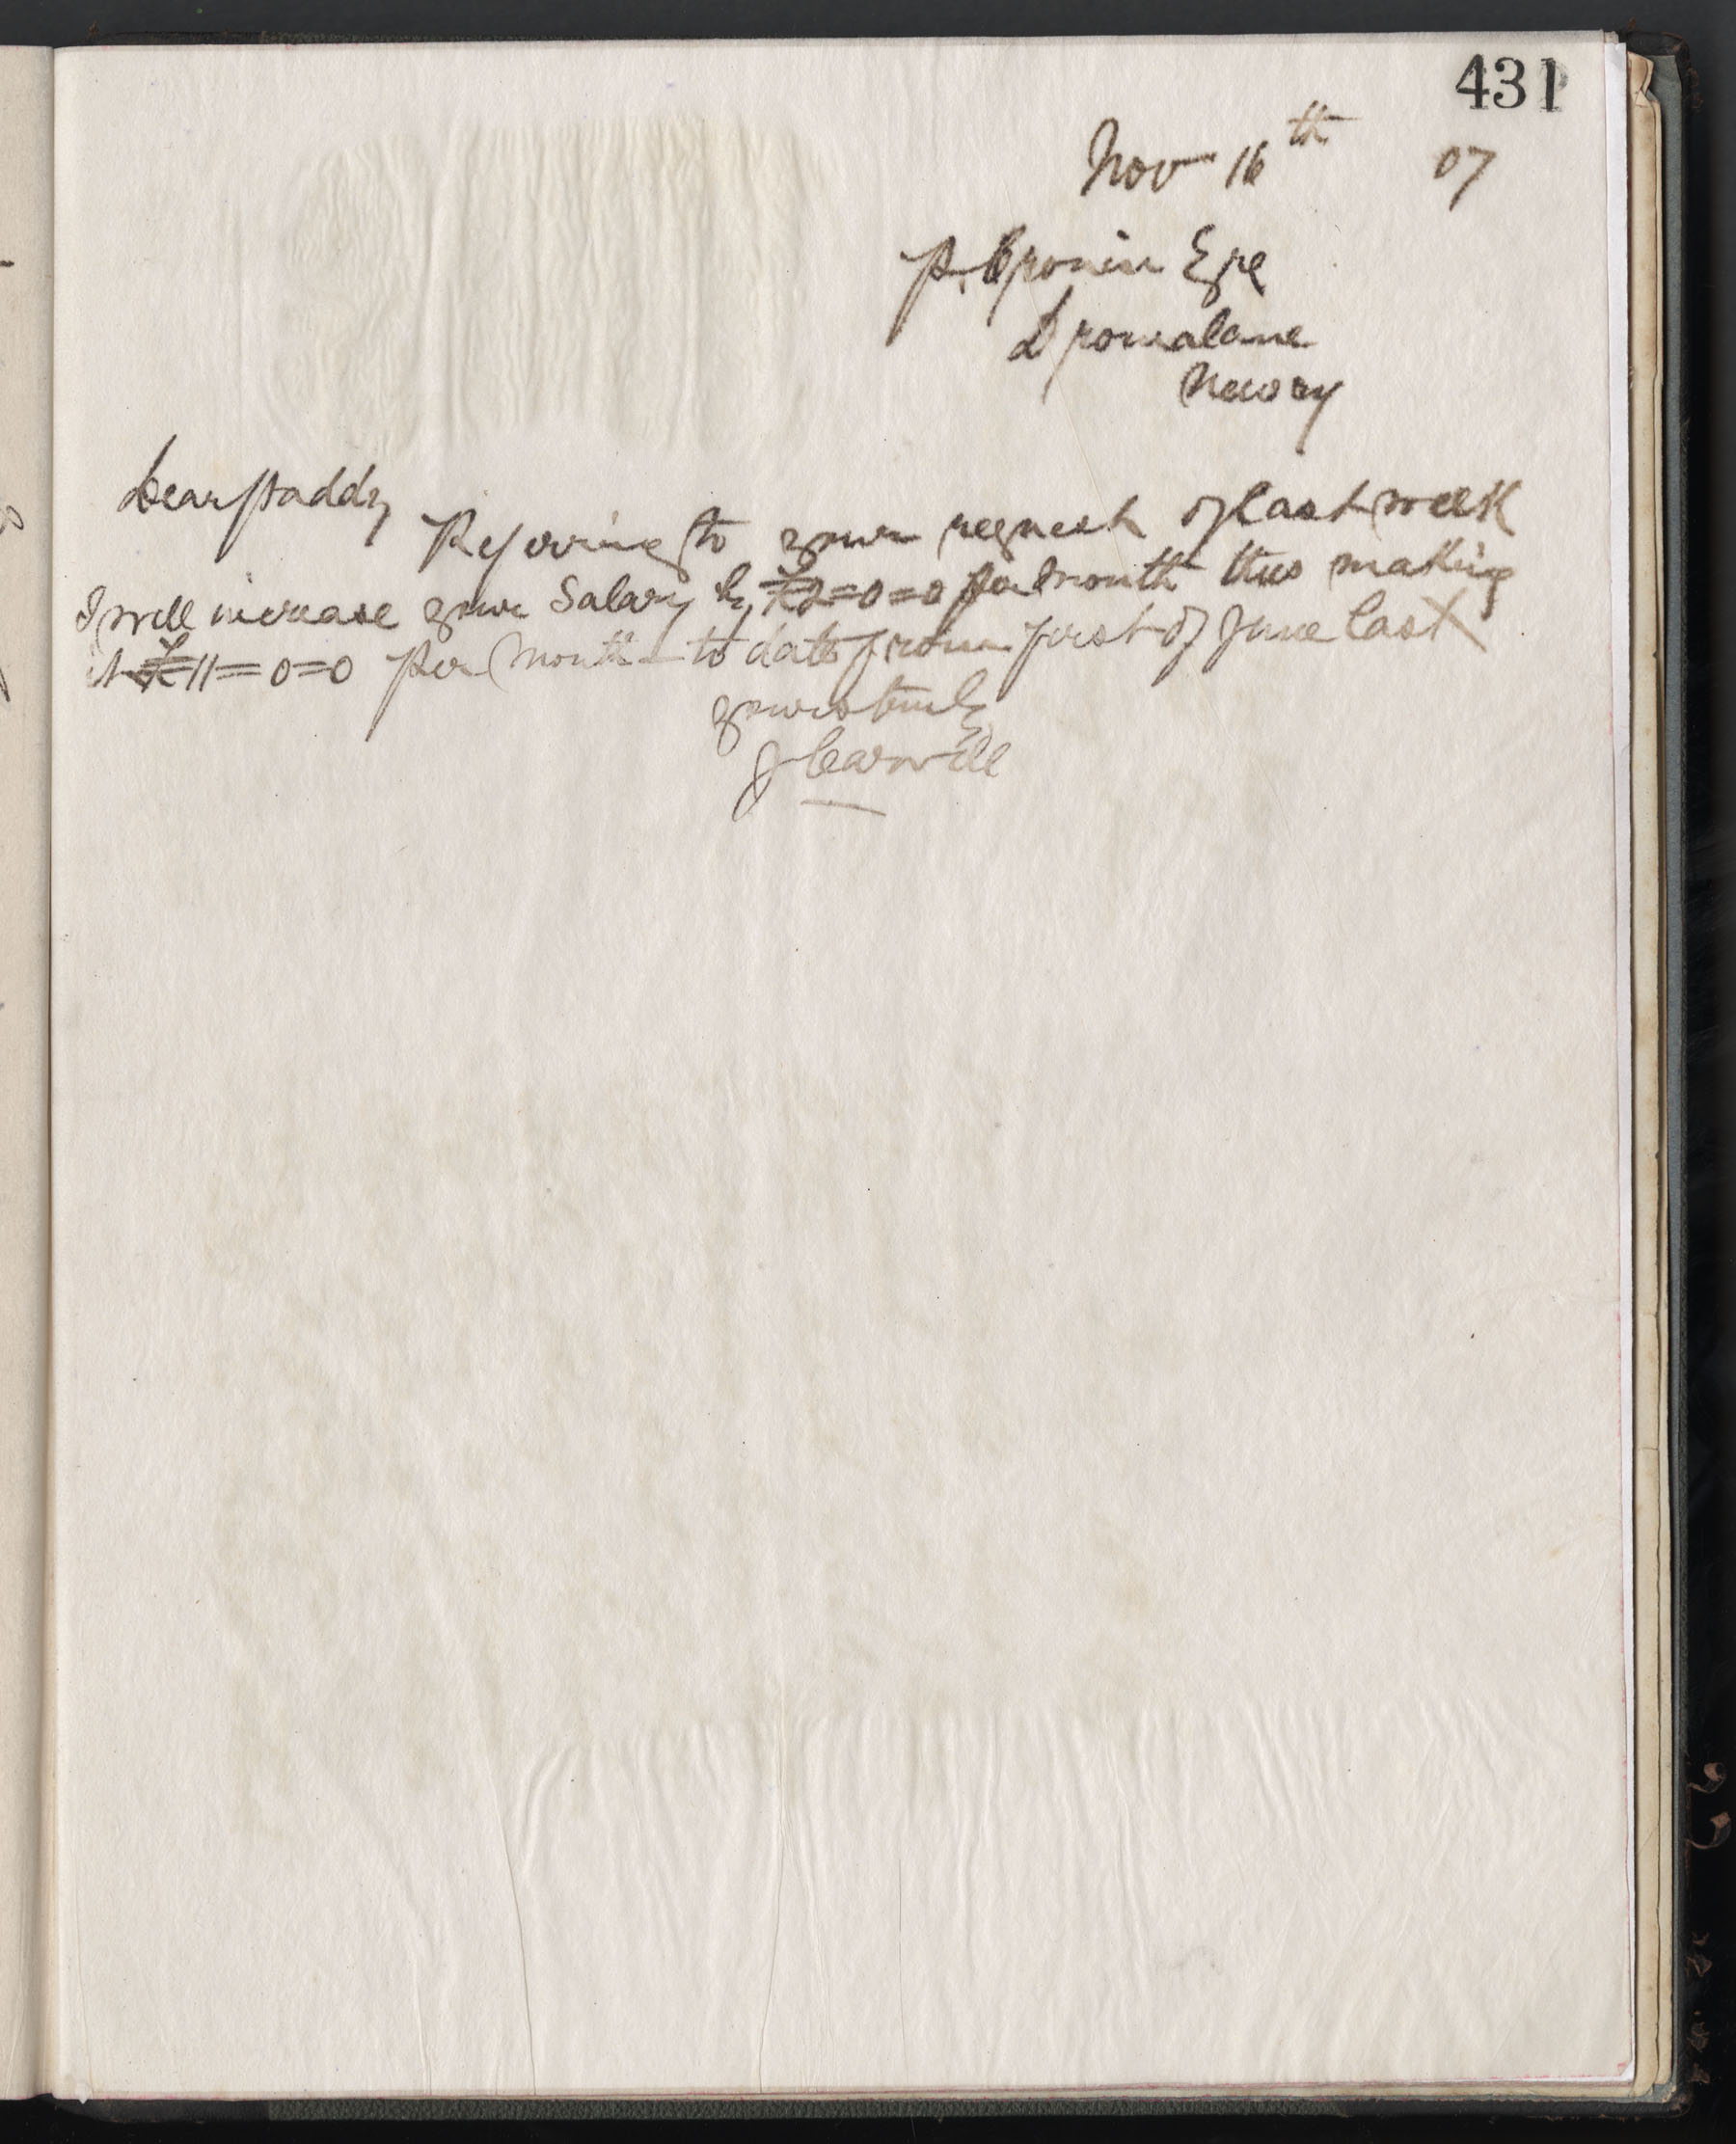 431
Nov 16th 07
P. Cronin Esqe
Dromalane
Newry
Dear Paddy
Referring to your request of last week
I will increase your Salary by £2=0=0 per month thus making
it £11=0=0 per month to date from first of June last
yours truly
J Carvill